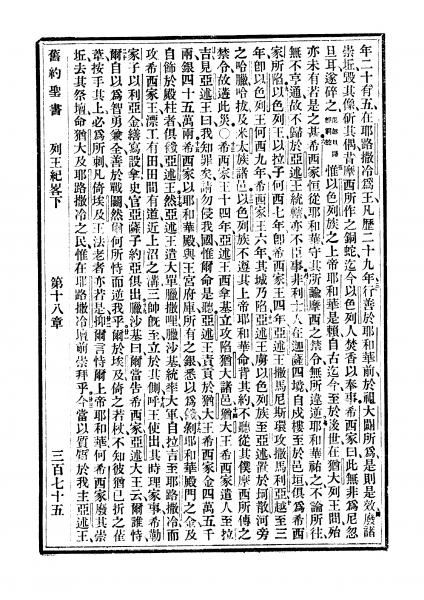 年二十有五在耶路撒冷爲王凡歷二十九年行善於耶和華前於祖大闢所爲是則是效廢諸
崇坵毀其像斫其偶昔摩西所作之銅蛇迄今以色列人焚香以奉事希西家曰此無非爲尼忽
旦耳遂碎之惟以色列之上帝耶和華是賴自古迄今至於後世在猶大列王間殆
亦未有若是之甚希西家恒從耶和華守其所諭摩西之禁令無所違逆耶和華祐之不論所往
無不亨通故不歸於亞述王統轄亦不臣事非利士人在迦薩四境自戍樓至於邑垣俱爲希西
家所陷以色列王以拉子何西七年卽希西家王四年亞述王撒馬尼斯環攻撒馬利亞越至三
年卽以色列王何西九年希西家王六年其城乃陷亞述王虜以色列族至亞述置於坷散河旁
之哈臘哈拔及米太族諸邑以色列族不遵其上帝耶和華命背其約不聽從其僕摩西所傳之
禁令故遘此災○希西家王十四年亞述王西拿基立攻陷猶大諸邑猶大王希西家遣人至拉
吉見亞述王曰我知罪矣請勿侵我國惟爾命是聽亞述王責貢於猶大王希西家金四萬五千
兩銀四十五萬兩希西家以耶和華殿與王宮府庫所有之銀悉以爲餽剝耶和華殿門之金及
自飾於殿柱者俱餽亞述王然亞述王遣大單臘撒哩臘沙基統率大軍自拉吉至耶路撒冷而
攻希西家王漂工有田田間有道近上沼之溝三帥旣至立於其側呼王使出其時理家事希勒
家子以利亞金繕寫設拿史官亞薩子約亞俱出臘沙基曰爾當告希西家亞述大王云爾誰恃
爾自以爲智勇兼全善於戰鬬然爾何所恃而逆我乎爾於埃及倚之若杖不知彼猶已折之葦
葦按手其上必爲所刺凡倚埃及王法老者亦若是抑爾言恃爾上帝耶和華何希西家廢其崇
坵去其祭壇命猶大及耶路撒冷之民惟在耶路撒冷壇前崇拜乎今當以質餽於我主亞述王
舊約聖書 列王紀畧下 第十八章 三百七十五